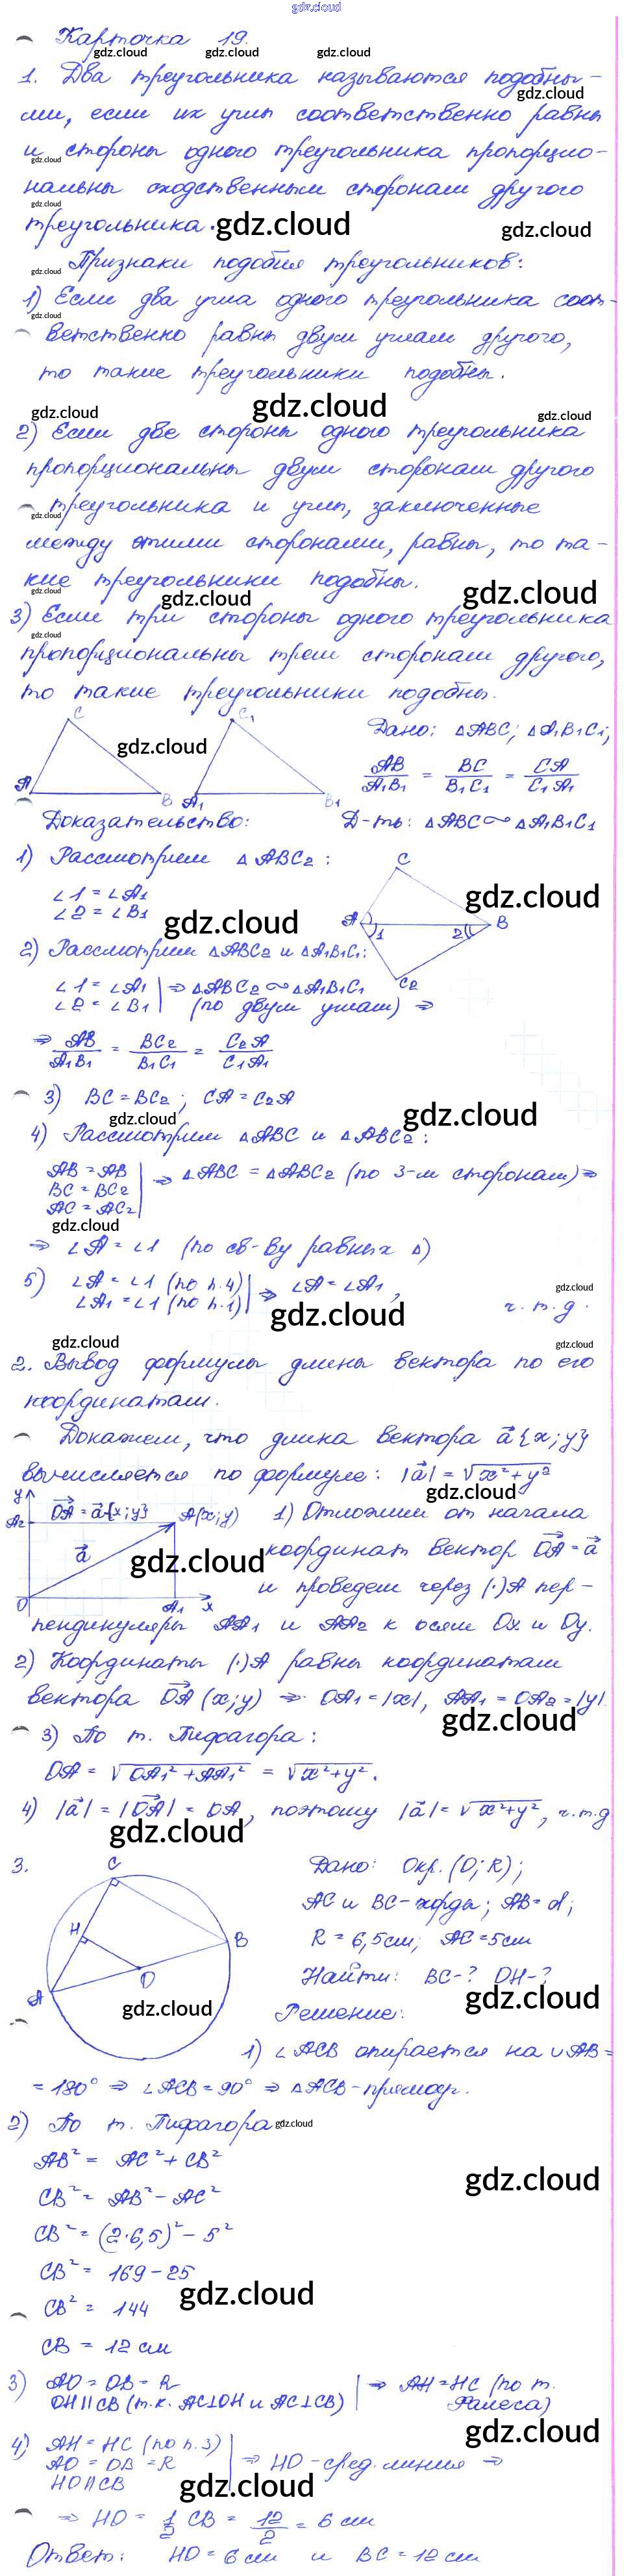 gdz.cloud
Карточка 19.
gdz.cloud gdz.cloud gdz.cloud
1. Два треугольника называются подобны-
gdz.cloud
ми, если их углы соответственно равны
и стороны одного треугольника пропорцио-
gdz.cloud
нальны сходственным сторонам другого
gdz.cloud
треугольника. gdz.cloud gdz.cloud
Признаки подобия треугольников:
gdz.cloud
1) Если два угла одного треугольника соот-
gdz.cloud
ветственно равны двум углам другого,
то такие треугольники подобны.
gdz.cloud gdz.cloud gdz.cloud
2) Если две стороны одного треугольника
пропорциональны двум сторонам другого
треугольника и углы, заключенные
gdz.cloud
между этими сторонами, равны, то та-
кие треугольники подобны.
gdz.cloud gdz.cloud gdz.cloud
3) Если три стороны одного треугольника
gdz.cloud
пропорциональны трем сторонам другого,
то такие треугольники подобны.
C C₁ Дано: △ABC; △A₁B₁C₁;
gdz.cloud
AB/A₁B₁ = BC/B₁C₁ = CA/C₁A₁
A B A₁ B₁
Доказательство: Д-ть: △ABC∾△A₁B₁C₁
1) Рассмотрим △ABC₂:
C
∠1 = ∠A₁
∠2 = ∠B₁
gdz.cloud gdz.cloud
A 1 2 B
C₂
2) Рассмотрим △ABC₂ и △A₁B₁C₁:
∠1 = ∠A₁ | ⇒ △ABC₂∾△A₁B₁C₁
∠2 = ∠B₁ | (по двум углам) ⇒
⇒ AB/A₁B₁ = BC₂/B₁C₁ = C₂A/C₁A₁
3) BC = BC₂; CA = C₂A
gdz.cloud gdz.cloud
4) Рассмотрим △ABC и △ABC₂:
AB = AB
BC = BC₂ | ⇒ △ABC = △ABC₂ (по 3-м сторонам) ⇒
AC = AC₂
gdz.cloud
⇒ ∠A = ∠1 (по св-ву равных △)
5) ∠A = ∠1 (по п.4) | ⇒ ∠A = ∠A₁,
∠A₁ = ∠1 (по п.1)
gdz.cloud
gdz.cloud ч.т.д.
gdz.cloud gdz.cloud
2. Вывод формулы длины вектора по его
координатам.
Докажем, что длина вектора a⃗{x;y}
вычисляется по формуле: |a⃗| = √x²+y²
gdz.cloud
y OA⃗ = a⃗{x;y} A(x;y)
A₂
a⃗
O A₁ x
1) Отложим от начала
gdz.cloud
координат вектор OA⃗ = a⃗
и проведем через (·)A пер-
пендикуляры AA₁ и AA₂ к осям Ox и Oy.
2) Координаты (·)A равны координатам
вектора OA⃗ (x;y) ⇒ OA₁ = |x|, AA₁ = OA₂ = |y|
gdz.cloud
3) По т. Пифагора:
OA = √OA₁² + AA₁² = √x²+y².
4) |a⃗| = |OA⃗| = OA, поэтому |a⃗| = √x²+y², ч.т.д
gdz.cloud
3. Дано: Окр. (O; R);
C
AC и BC-хорды; AB = d;
H B
R = 6,5см; AC = 5см
O
Найти: BC-? OH-?
A
gdz.cloud gdz.cloud
Решение:
1) ∠ACB опирается на ∪AB =
= 180° ⇒ ∠ACB = 90° ⇒ △ACB-прямоуг.
2) По т. Пифагора
gdz.cloud
AB² = AC² + CB²
gdz.cloud
CB² = AB² - AC²
CB² = (2·6,5)² - 5²
CB² = 169 - 25
gdz.cloud
CB² = 144
CB = 12 см
3) AO = OB = R | ⇒ AH = HC (по т.
OH || CB (т.к. AC⊥OH и AC⊥CB) | Фалеса)
gdz.cloud
4) AH = HC (по п.3)
AO = OB = R | ⇒ HO - сред. линия ⇒
HO || CB
gdz.cloud
⇒ HO = 1/2 CB = 12/2 = 6 см
Ответ: HO = 6 см и BC = 12 см